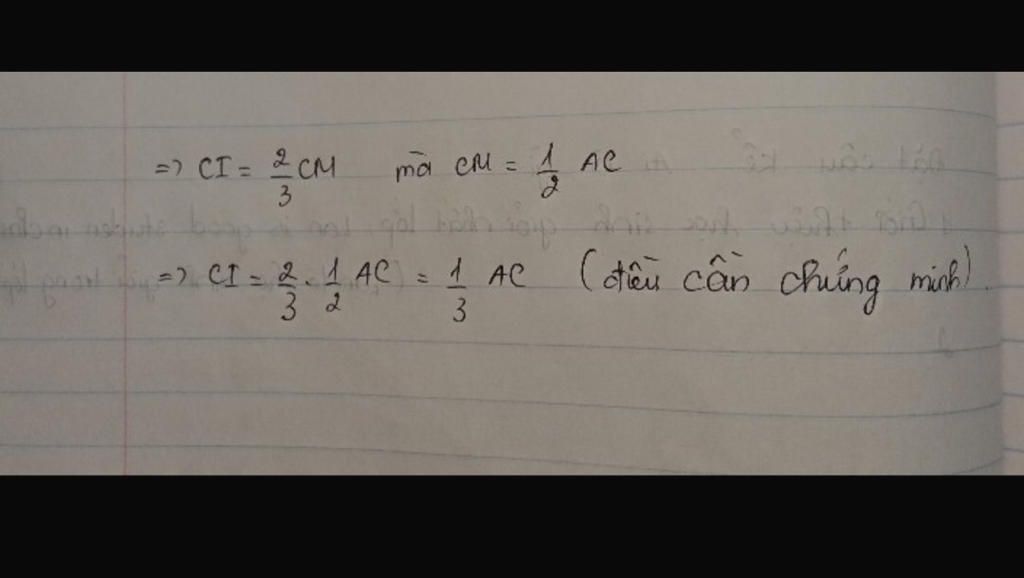 => CI = 2/3 CM mà CM = 1/2 AC
=> CI = 2/3 . 1/2 AC = 1/3 AC (điều cần chứng minh).